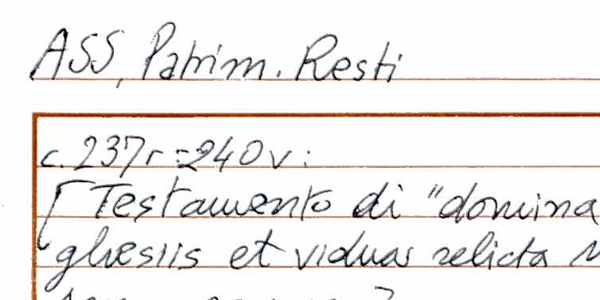 ASS, Patrim. Resti
c. 237r-240v:
[Testamento di "domina
ghesiis et vidua relicta